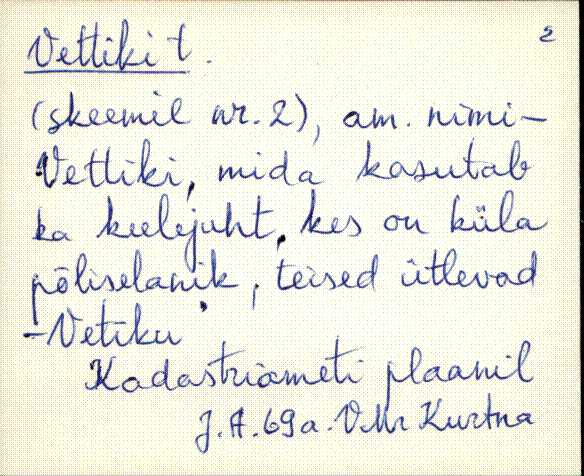 Vettiki t. 2
(skeemil nr. 2), am. nimi-
Vettiki, mida kasutab
ka keelejuht, kes on küla
põliselanik, teised ütlevad
-Vetiku
Kadastriameti plaanil
J.A.69a. VMr Kurtna